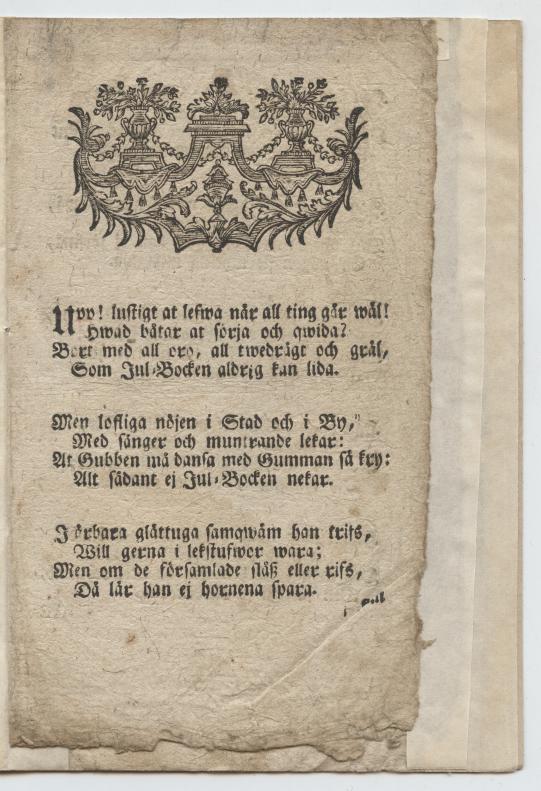 Upp! lustigt at lefwa när all ting går wäl!
Hwad båtar at sörja och qwida?
Bort med all oro, all twedrägt och gräl,
Som Jul-Bocken aldrig kan lida.
Men lofliga nöjen i Stad och i By,
Med sånger och muntrande lekar:
At Gubben må dansa med Gumman så kry:
Alt sådant ej Jul-Bocken nekar.
I ärbara glättuga samqwäm han trifs,
Will gerna i lekstufwor wara;
Men om de församlade slåß eller rifs,
Då lär han ej hornena spara.